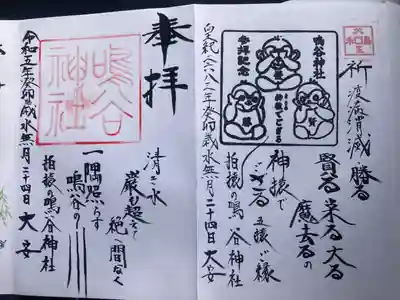 祈
疫病消滅
勝る
賢る
来る
大る
魔去るの
神猿で
ござる
五猿ご縁
拍猿の鳴谷神社
皇紀二六八三年癸卯歳水無月二十四日大安
参拝記念
鳴谷神社
奉拝
清き水
巌も超えて
絶へ間なく
一隅照らす
鳴谷の
拍猿の鳴谷神社
令和五年癸卯歳水無月二十四日大安
鳴谷神社